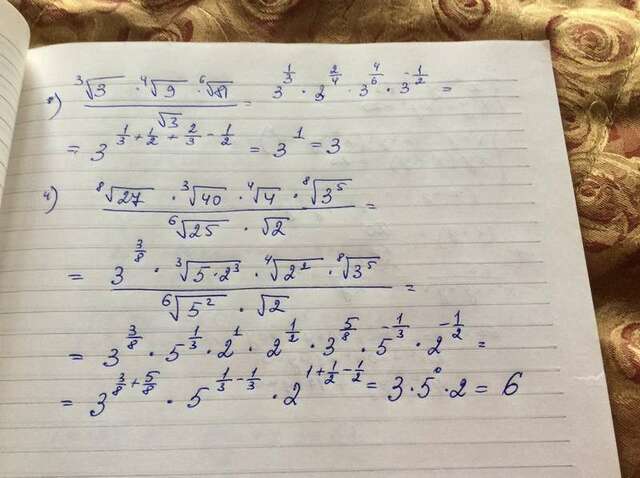 3) (∛3 · ∜9 · ⁶√81) / √3 = 3^(1/3) · 3^(2/4) · 3^(4/6) · 3^(-1/2) =
= 3^(1/3 + 1/2 + 2/3 - 1/2) = 3^1 = 3
4) (⁸√27 · ∛40 · ∜4 · ⁸√3^5) / (⁶√25 · √2) =
= (3^(3/8) · ∛(5·2^3) · ∜(2^2) · ⁸√3^5) / (⁶√5^2 · √2) =
= 3^(3/8) · 5^(1/3) · 2^1 · 2^(1/2) · 3^(5/8) · 5^(-1/3) · 2^(-1/2) =
= 3^(3/8 + 5/8) · 5^(1/3 - 1/3) · 2^(1 + 1/2 - 1/2) = 3 · 5^0 · 2 = 6